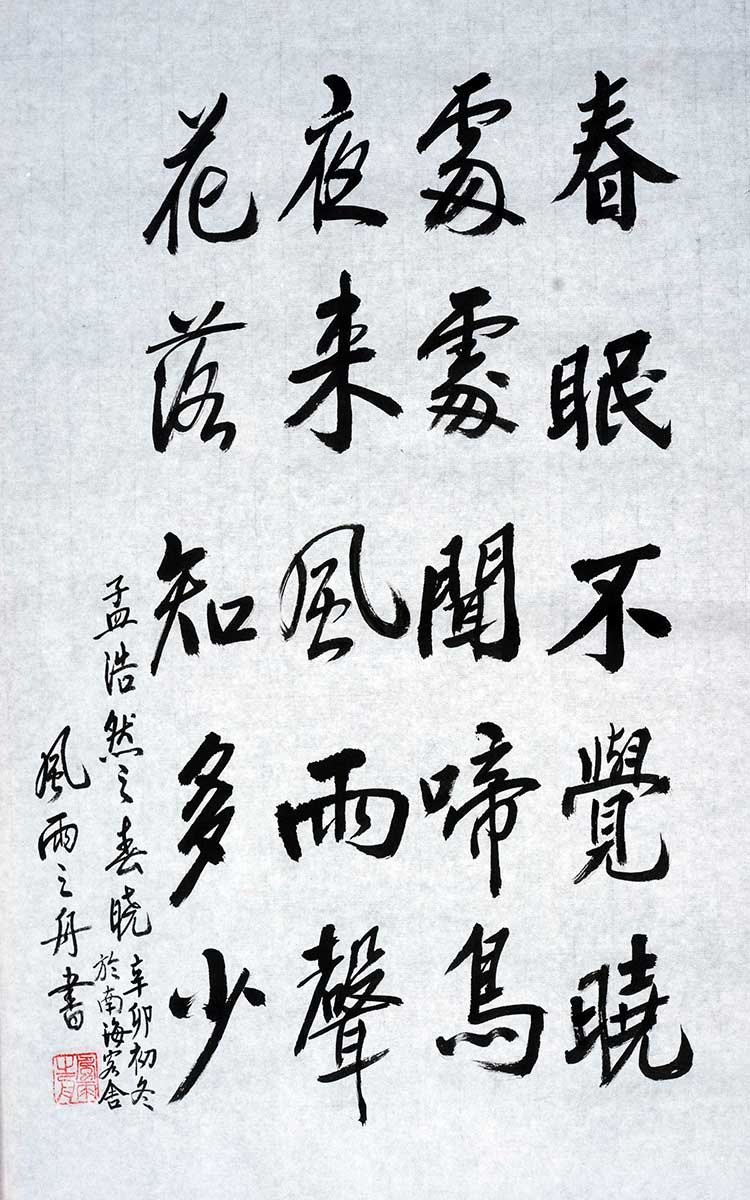 春眠不覺曉
處處聞啼鳥
夜来風雨聲
花落知多少
孟浩然之春曉
辛卯初冬
於南海客舍
風雨之舟書